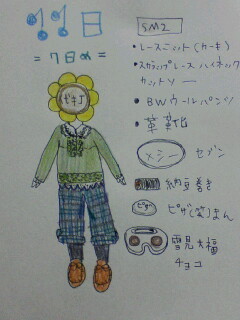 日
= 7日め =
SM2
・レースニット(カーキ)
・スカラップレースハイネック
カットソー
・BWウールパンツ
・革靴
メシー セブン
納豆巻き
ピザ ピザ(笑)まん
雪見大福
チョコ